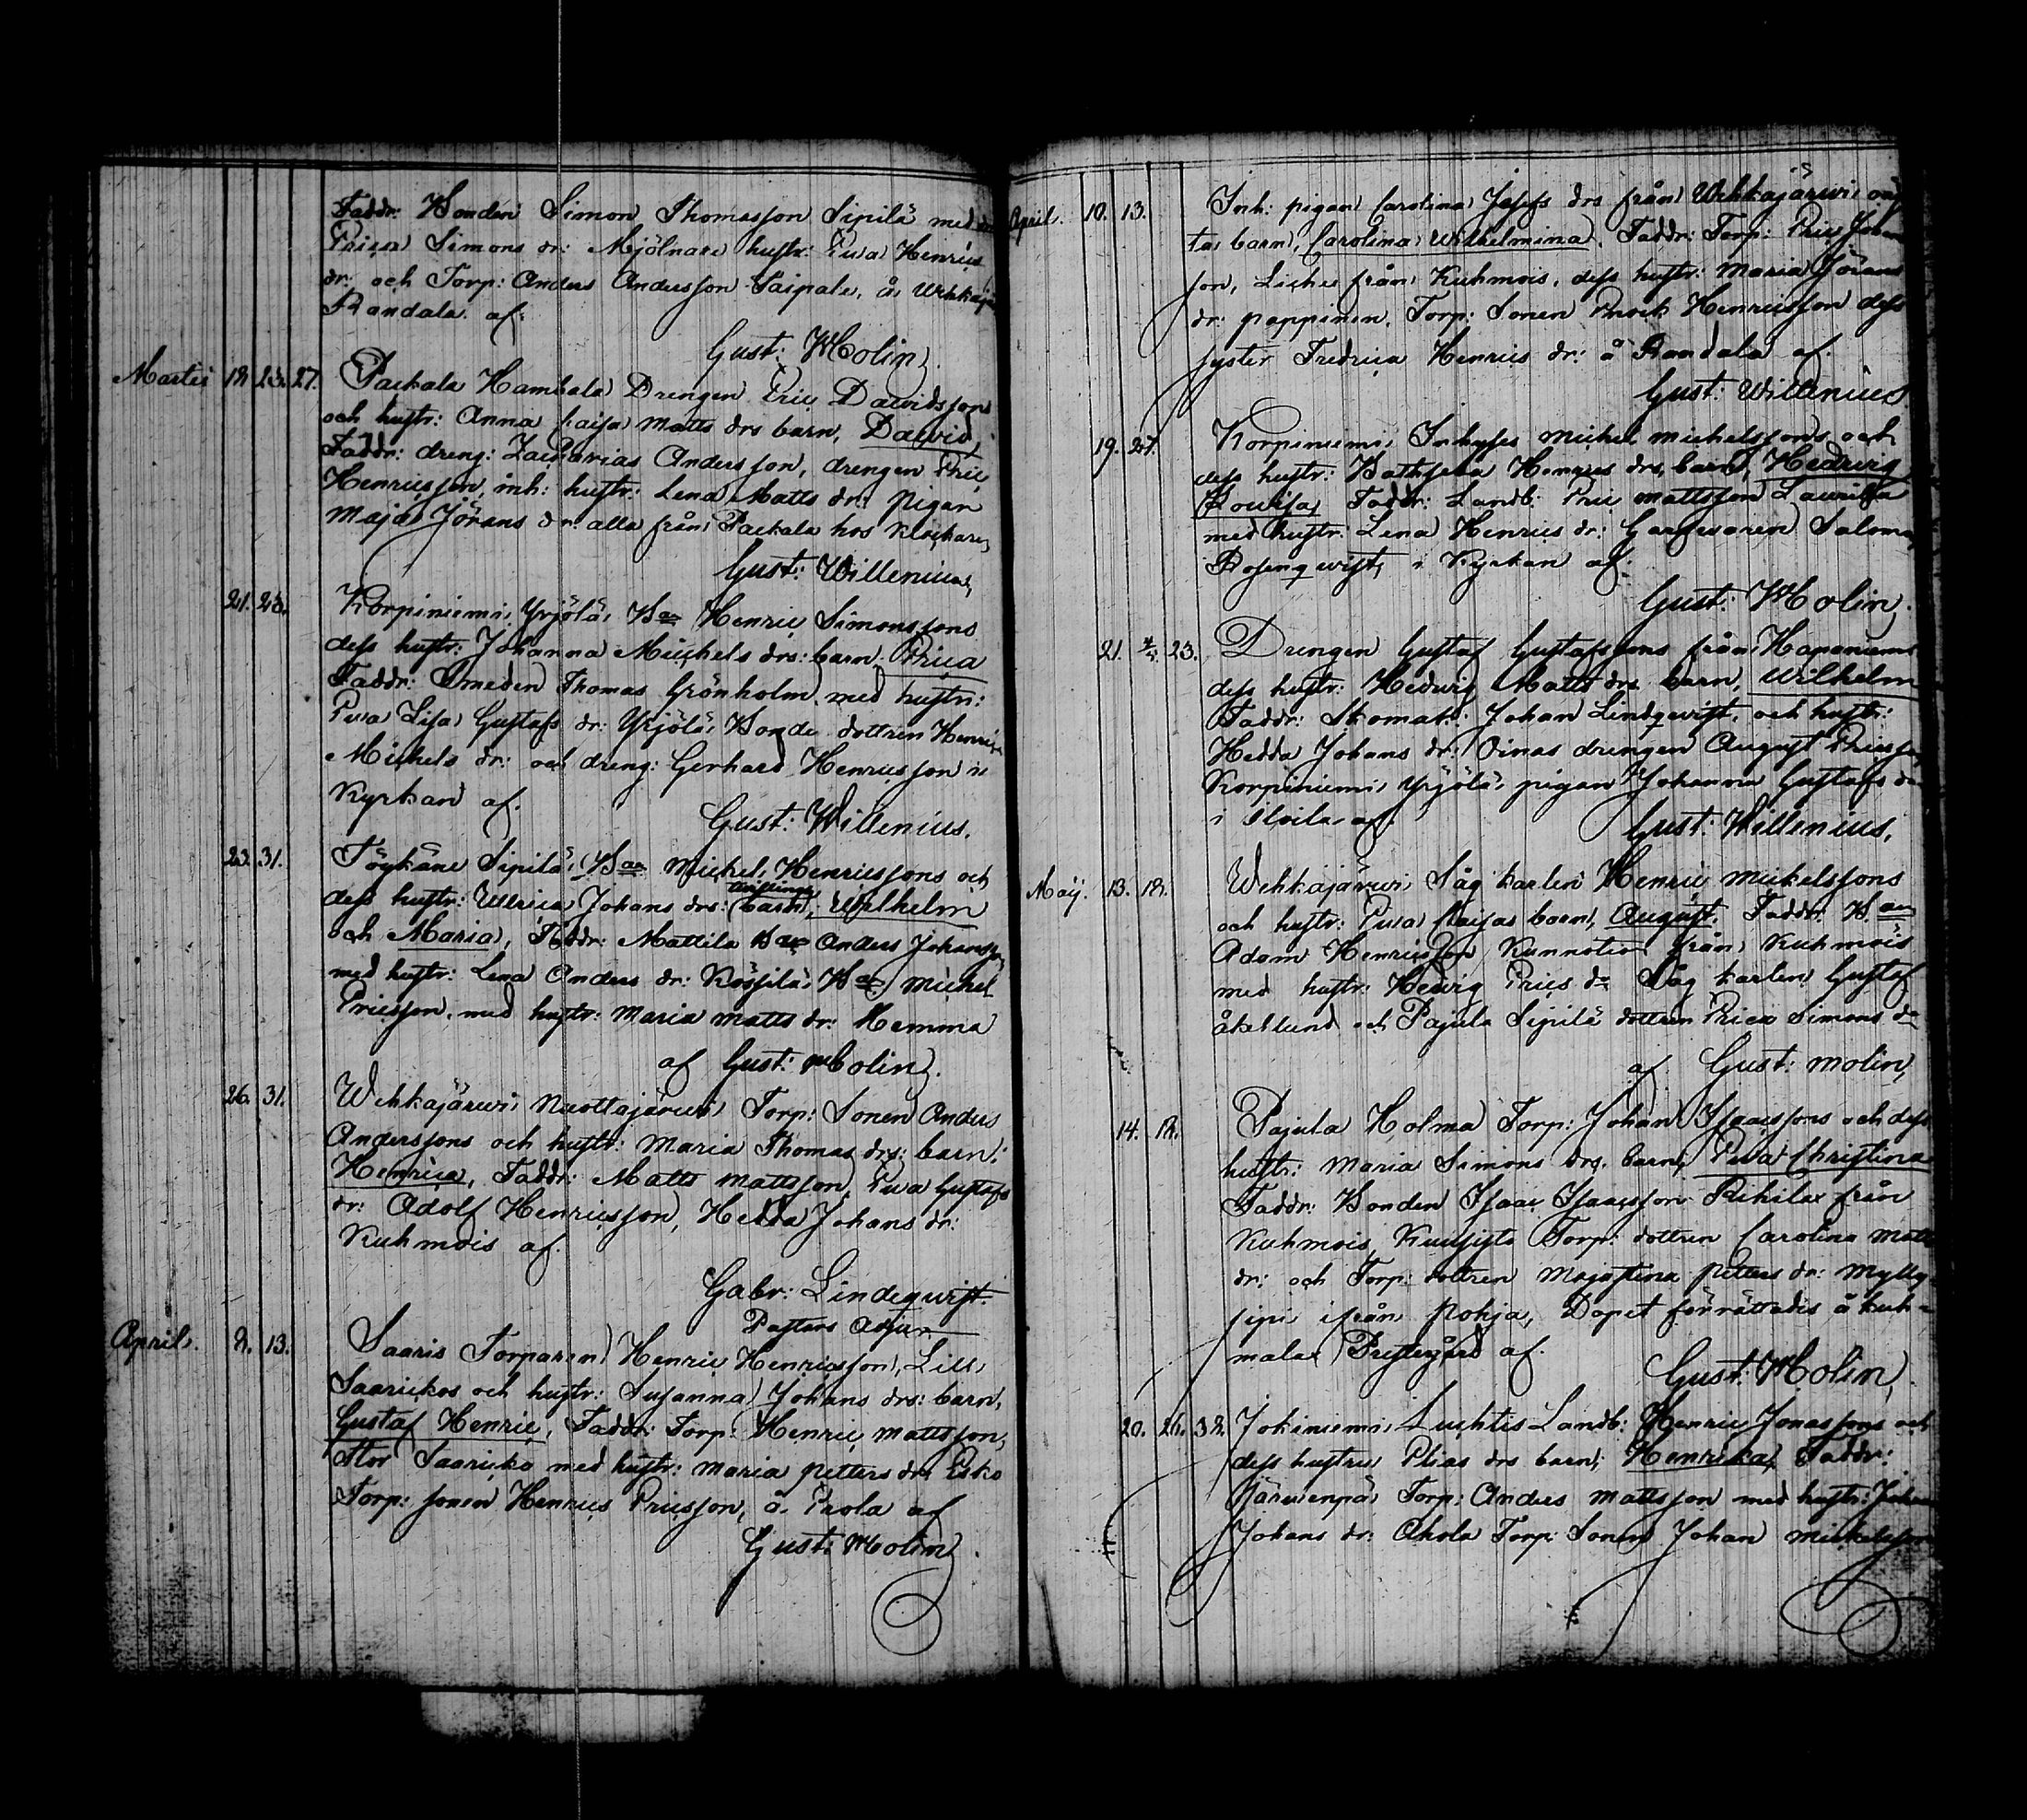 Faddr: Bonden Simon Thomasson Sipilä med
Erica Simons dr: Mjölnare hustr: Eva Henrics
dr: och Torp: Anders Andersson Taipale, å Wehkajärvi
Randala af.
Gust: Molin.
Martii 18 23. 27. Packala Hambala Drengen Eric Davidssons
och hustr: Anna Caisa Matts drs barn, David,
Faddr: dreng: Zacharias Andersson, drengen Eric
Henricsson, inh: hustr: Lena Matts dr: pigan
Maja Jörans dr: alla från Packala hos Klockaren
Gust: Willenius,
21. 23. Korpiniemi Yrjölä Ban Henric Simonssons
dess hustr: Johanna Michels drs: barn Erica
Faddr: Smeden Thomas Grönholm med hustr:
Eva Lisa Gustafs dr: Yrjölä Bonde dottren Henrica
Michels dr: och dreng: Gerhard Henricsson i
Kyrkan af.
Gust: Willenius.
23. 31. Töykäne Sipilä Ban Michel Henricssons och
dess hustr: Ullrica Johans drs: barn, tvillingar Wilhelm
och Maria, Faddr: Mattila Ban Anders Johansson
med hustr: Lena Anders dr: Kössilä Ban Michel
Ericsson, med hustr: Maria Matts dr: Hemma
af Gust: Molin.
26. 31. Wehkajärvi Nuottajärvi Torp: Sonen Anders
Anderssons och hustr: Maria Thomas drs: barn:
Henrica, Faddr: Matts Mattsson, Eva Gustafs
dr: Adolf Henricsson, Hedda Johans dr:
Kuhmois af.
Gabr: Lindeqvist.
Pastors Adjun
April. 8. 13. Saaris Torparen Henric Henricsson, Lill
Saarickos och hustr: Susanna Johans drs: barn,
Gustaf Henric, Faddr: Torp: Henric Mattsson,
Stor Saaricko med hustr: Maria Petters dr: Esko
Torp: sonen Henrics Ericsson, å Erola af
Gust: Molin.
April. 10. 13. Inh: pigan Carolina Josefs drs från Wehkajärvi oäg
ta barn, Carolina Wilhelmina. Faddr: Torp: Eric Johan
son, Liehes från Kuhmois, dess hustr: Maria Jörans
dr: pappinen, Torp: Sonen Enock Henricsson dess
syster Fredrica Henrics dr: å Randala af.
Gust: Willenius.
19. 27. Korpiniemi Inhyses Michel Michelssons och
dess hustr: Bathseba Henrics drs, barn, Hedvig
Lovisa, Faddr: Landb: Eric Mattsson Laurila
med hustr: Lena Henrics dr: Garfvaren Salomon
Rosenqwist, i Kyrkan af.
Gust: Molin.
21. 23. Drengen Gustaf Gustafssons från Haponiemi
dess hustr: Hedvig Matts drs barn, Wilhelm
Faddr: Skomak: Johan Lindqwist, och hustr:
Hedda Johans dr: Oinas drengen August Ericsson
Korpiniemi Yrjölä pigan Johanna Gustafs dr
i af.
Gust: Willenius,
Maij. 13. 18. Wehkajärvi Såg karlen Henric Mickelssons
och hustr: Eva Caisas barn, August. Faddr: Ban
Adam Henricsson Kunnotion från Kuhmois
med hustr: Hedvig Erics dr Såg karlen Gustaf
Åkeblund och Pajula Sipilä dottren Erica Simons dr
af Gust: Molin,
14. 18. Pajula Holma Torp: Johan Isacssons och dess
hustr: Maria Simons drs. barn, Eva Christina
Faddr: Bonden Isaac Isaacsson Rihila från
Kuhmois, Kuusisto Torp: dottren Carolina Matts
dr: och Torp: dottren Majastina Petters dr: Mylly
sipi ifrån Pohja, Dopet förrättades å kuh-
mala Prestegård af.
Gust: Molin,
20. 26. 38. Jokiniemi Luchtis Landb: Henric Jonassons och
dess hustru Elias drs barn, Henrika, Faddr:
Järvenpä Torp: Anders Mattsson med hustr: Johan
Johans dr: Ahola Torp: Sonen Johan Mickelsson